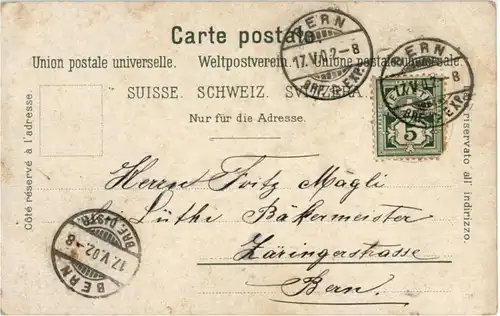 Carte postale.
Union postale universelle. Weltpostverein. Unione postale universale.
SUISSE. SCHWEIZ. SVIZZERA.
Nur für die Adresse.
Côté réservé à l'adresse.
riservato all' indirizzo.
BERN
17.V.02-8
BRF. EXP.
BERN
17.V.
-8
BRF. EXP.
5
Herrn Fritz Mägli
Lüthi Bäkermeister
Zäringerstrasse
Bern.
BERN
17.V.02-8
BRF. DISTR.